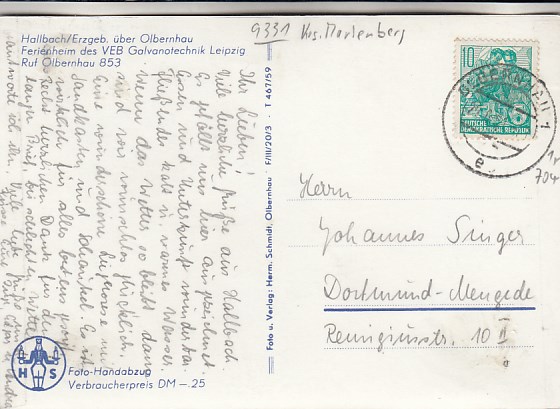 9331 Krs. Marienberg
Hallbach/Erzgeb. über Olbernhau
Ferienheim des VEB Galvanotechnik Leipzig
Ruf Olbernhau 853
Ihr Lieben!
Viel herzliche Grüße aus Hallbach.
Es gefällt uns hier ausgezeichnet.
Essen und Unterkunft wunderbar.
Fließendes kalt u. warmes Wasser.
Wenn das Wetter so bleibt dann
sind wir wunschlos glücklich.
Eine wunderschöne
Sandkasten und Schaukel. Es ist
wirklich für alles bestens
Recht herzlichen Dank für den
langen Brief, bei schlechtem Wetter
antworte ich
Viel liebe Grüße
Foto u. Verlag: Herm. Schmidt, Olbernhau F/III/20/3 T 467/59
10
DEUTSCHE
DEMOKRATISCHE REPUBLIK
OLBERNHAU 1
e
704
Herrn
Johannes Singer
Dortmund-Mengede
Remigiusstr. 10 II
H S
Foto-Handabzug
Verbraucherpreis DM -.25